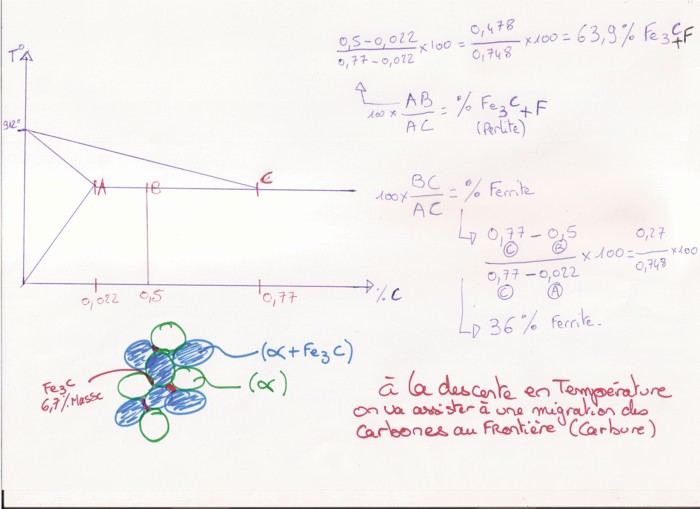 T°
912°
A
B
C
0,022
0,5
0,77
%C
0,5-0,022 / 0,77-0,022 x100 = 0,478 / 0,748 x100 = 63,9% Fe3C+F
100 x AB / AC = % Fe3C+F
(Perlite)
100 x BC / AC = % Ferrite
0,77 - 0,5 / 0,77 - 0,022 x 100 = 0,27 / 0,748 x100
C B
C A
36% Ferrite.
(α+Fe3C)
(α)
Fe3C
6,7% Masse
à la descente en Température
on va assister à une migration des
Carbones au Frontière (Carbure)